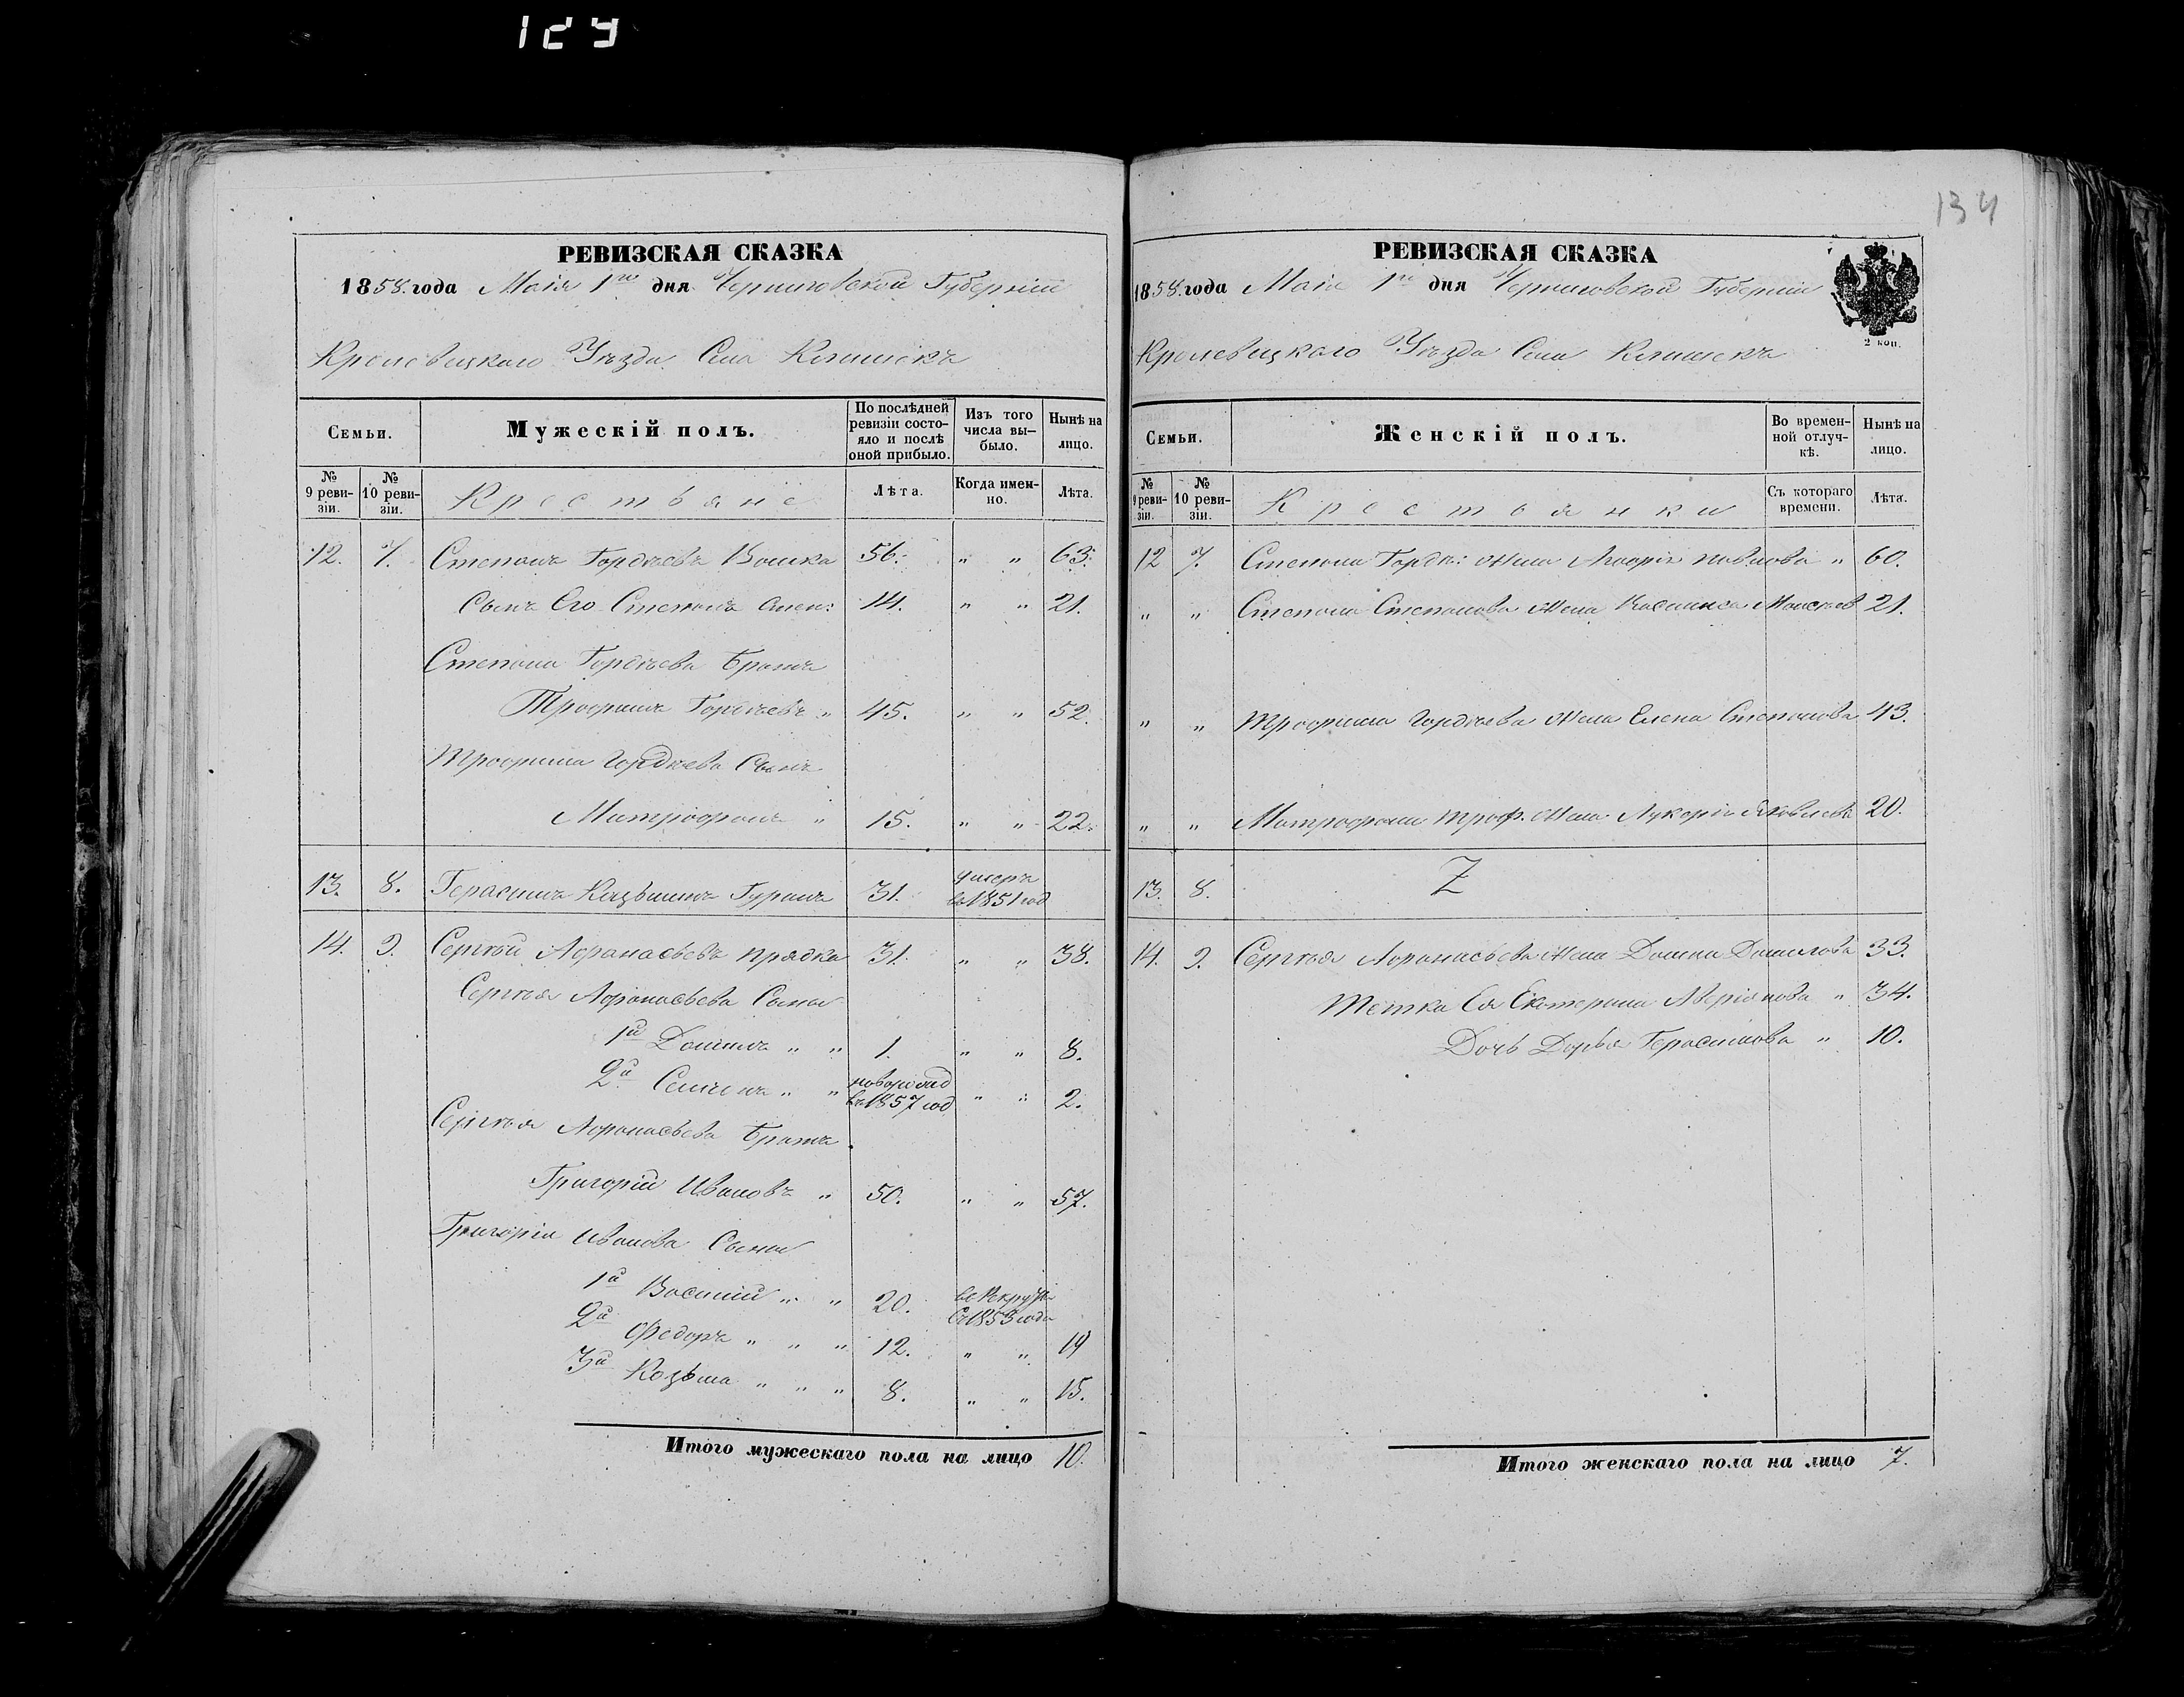 129
134
РЕВИЗСКАЯ СКАЗКА
1858 года Маія 1го дня Черниговской Губерніи
Кролевецкаго Уѣзда Села Клишекъ
Семьи. Мужескій полъ. По послѣдней ревизіи состояло и послѣ оной прибыло. Изъ того числа выбыло. Нынѣ на лицо.
№ 9 ревизіи. № 10 ревизіи. Крестьяне Лѣта. Когда именно. Лѣта.
12. 7. Степанъ Гордѣевъ 56. " " 63.
Сынъ Его Степанъ 14. " " 21.
Степана Гордѣева Братъ
Трофимъ Гордѣевъ " 45. " " 52.
Трофима Гордѣева Сынъ
Митрофанъ " 15. " " 22.
13. 8. Герасимъ Кузьминъ 31. умеръ въ 1851 год
14. 9. Сергѣй Афанасьевъ Прядка 31. " " 38.
Сергѣя Афанасьева Сыны
1й Данилъ " " 1. " " 8.
2й Семенъ " " новорожд въ 1857 год " " 2.
Сергѣя Афанасьева Братъ
Григорій Ивановъ " 50. " " 57.
Григорія Иванова Сыны
1й Василій " " 20. въ Рекруты Съ 1853 года
2й Федоръ " " " 12. " " 19
3й Козьма " " " 8. " " 15.
Итого мужескаго пола на лицо 10.
РЕВИЗСКАЯ СКАЗКА
1858 года Маія 1го дня Черниговской Губерніи
2 коп.
Кролевецкаго Уѣзда Села Клишекъ
Семьи. Женскій полъ. Во временной отлучкѣ. Нынѣ на лицо.
№ 9 ревизіи. № 10 ревизіи. Крестьянки Съ котораго времени. Лѣта.
12 7. Степана Горд: жена Павлова " 60.
" " Степана Степанова жена 21.
" " Трофима Гордѣева жена Елена Степанова 43.
" " Митрофана Троф. жена Лукерія Яковлева 20.
13. 8. Z
14. 9. Сергѣя Афанасьева жена Домна Данилова 33.
Тетка Ея Екатерина Аверіанова " 34.
Дочь Дарья Герасимова " 10.
Итого женскаго пола на лицо 7.